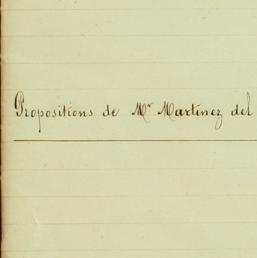 Propositions de Mr Martinez del